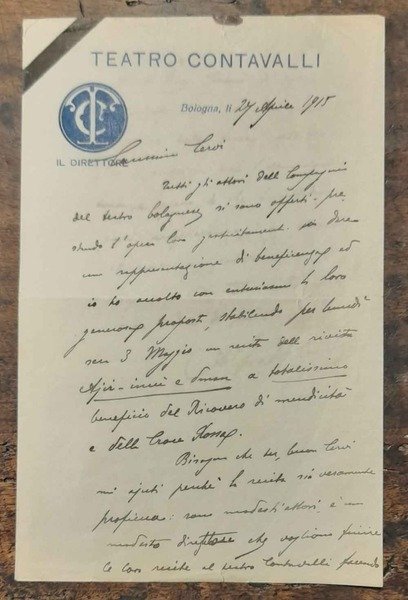 TEATRO CONTAVALLI
Bologna, li 27 Aprile 1915
IL DIRETTORE
Carissimo Cervi
Tutti gli attori della Compagnia
del teatro bolognese si sono offerti pre-
stando l'opera loro gratuitamente di dare
una rappresentazione di beneficenza ed
io ho accolto con entusiasmo la loro
generosa proposta, stabilendo per lunedì
sera 3 Maggio un recita della rivista
Ajir-incu e dman a totalissimo
beneficio del Ricovero di mendicità
e della Croce Rossa.
Bisogna che tu, buon Cervi
mi ajuti perchè la recita sia veramente
proficua: sono modesti attori e un
modesto direttore che vogliono finire
le loro recite al teatro Contavalli facendo